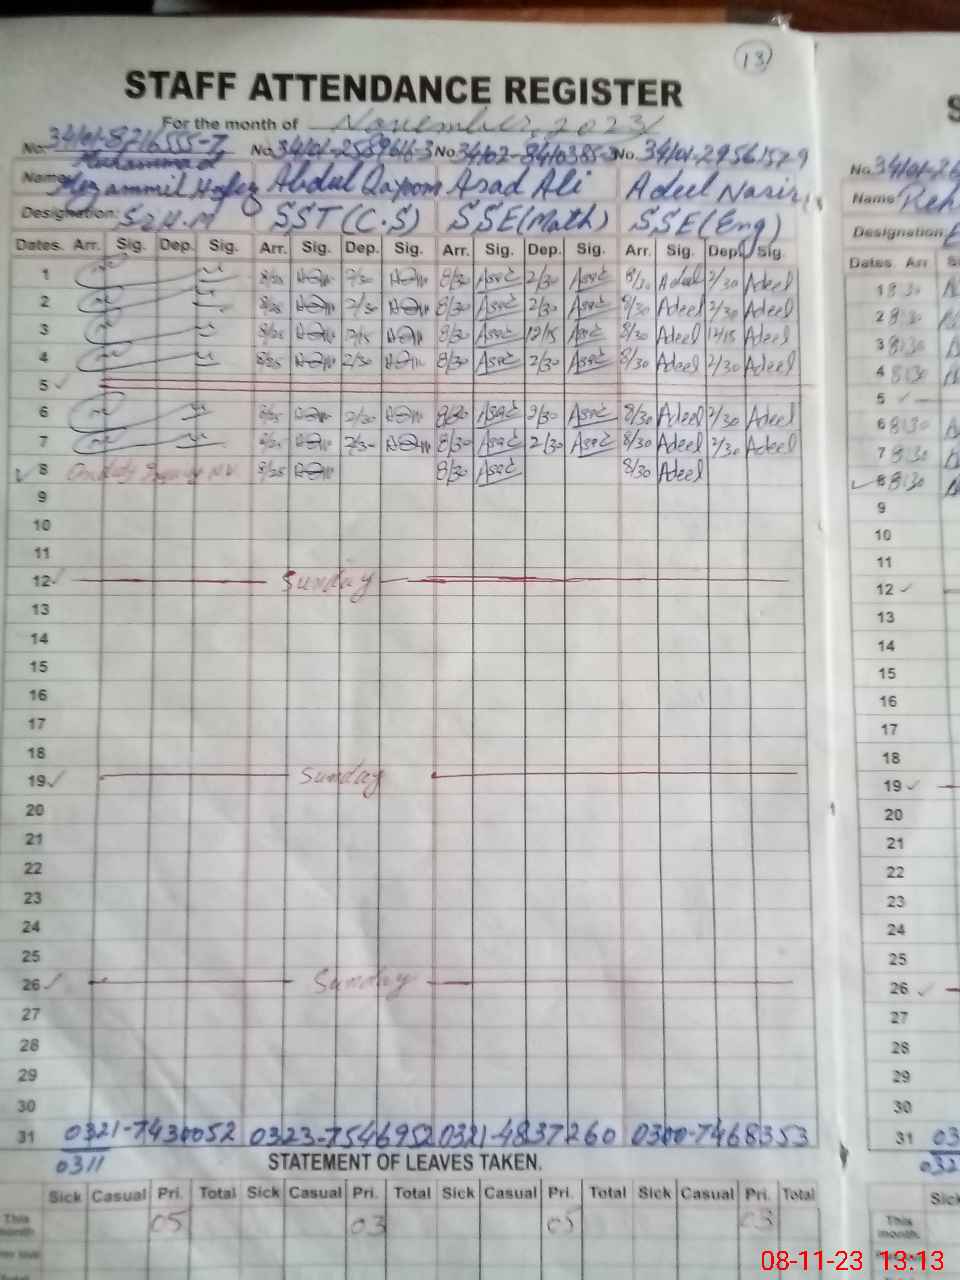 13
STAFF ATTENDANCE REGISTER
For the month of November, 2023
No. 34101-8716555-7 No. 34101-2589616-3 No. 34102-8410385-3 No. 34101-2956157-9
Muhammad
Name: Mozammil Hafeez Abdul Qayoom Asad Ali Adeel Nasir
Designation: S2H.M SST (C.S) SSE (Math) SSE (Eng)
Dates. Arr. Sig. Dep. Sig. Arr. Sig. Dep. Sig. Arr. Sig. Dep. Sig. Arr. Sig. Dep. Sig.
1 8/25 2/30 8/30 Asad 2/30 Asad 8/30 Adeel 2/30 Adeel
2 8/25 2/30 8/30 Asad 2/30 Asad 8/30 Adeel 2/30 Adeel
3 8/25 12/15 8/30 Asad 12/15 Asad 8/30 Adeel 12/15 Adeel
4 8/25 2/30 8/30 Asad 2/30 Asad 8/30 Adeel 2/30 Adeel
5
6 8/25 2/30 8/30 Asad 2/30 Asad 8/30 Adeel 2/30 Adeel
7 8/25 2/30 8/30 Asad 2/30 Asad 8/30 Adeel 2/30 Adeel
8 On duty 8/25 8/30 Asad 8/30 Adeel
9
10
11
12 Sunday
13
14
15
16
17
18
19 Sunday
20
21
22
23
24
25
26 Sunday
27
28
29
30
31 0321-7430052 0323-7546952 0321-4837260 0300-7468353
0311
STATEMENT OF LEAVES TAKEN.
Sick Casual Pri. Total Sick Casual Pri. Total Sick Casual Pri. Total Sick Casual Pri. Total
This month. 05 03 05 03
S
No. 34101-26
Name Reh
Designation
Dates Arr S
1 8:30
2 8:30
3 8:30
4 8:30
5
6 8:30
7 8:30
8 8:30
9
10
11
12
13
14
15
16
17
18
19
20
21
22
23
24
25
26
27
28
29
30
31 03
032
Sick
This month.
08-11-23 13:13